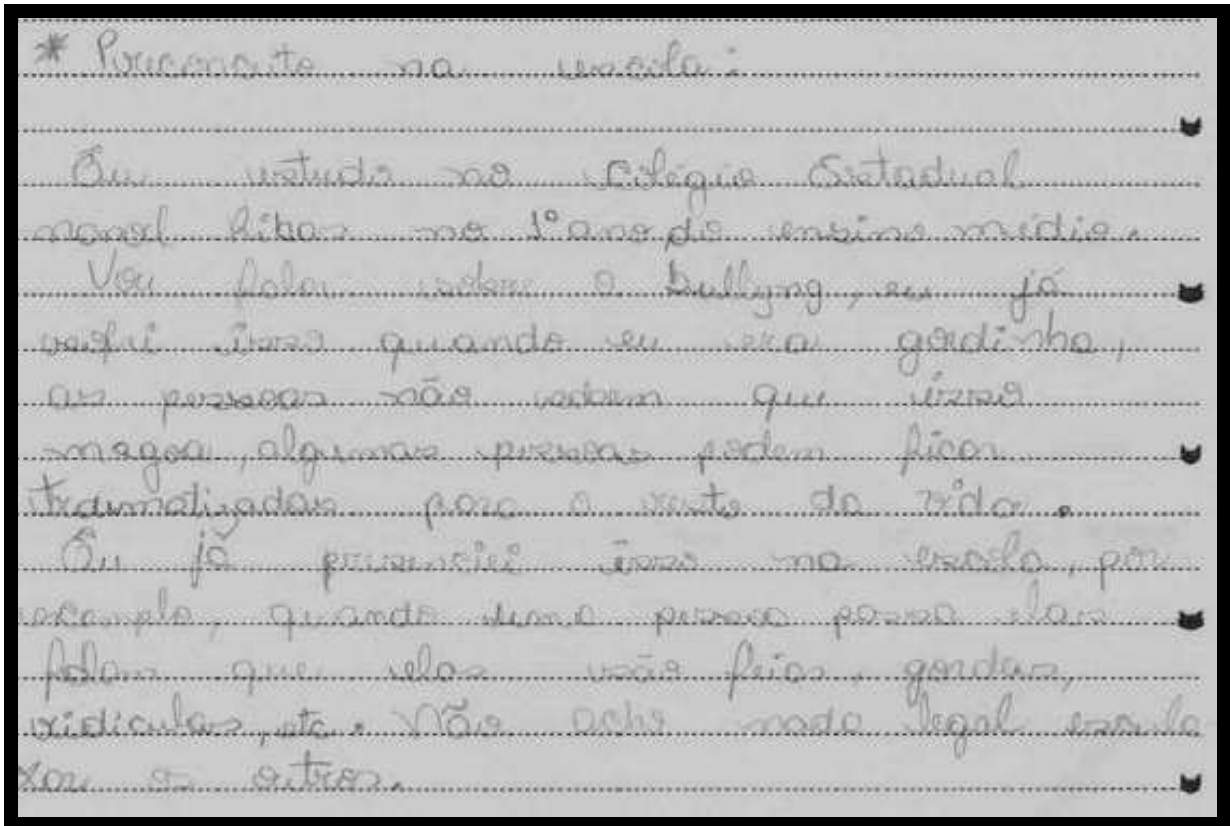 * Preconceito na escola:
Eu estudo no Colégio Estadual
manoel Ribas no 1º ano do ensino médio.
Vou falar sobre o bullyng, eu já
sofri isso quando eu era gordinha,
as pessoas não sabem que isso
magoa, algumas pessoas podem ficar
traumatizadas para o resto da vida.
Eu já presenciei isso na escola, por
exemplo, quando uma pessoa passa elas
falam que elas são feias, gordas,
ridiculas, etc. Não acho nada legal escula
xar os outros.